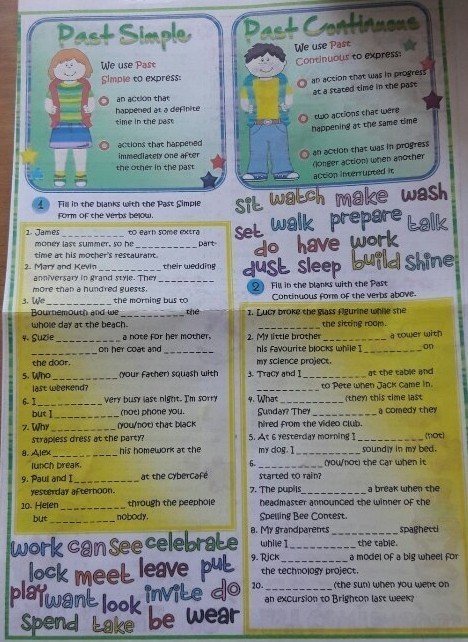 Past Simple
We use Past
Simple to express:
an action that
happened at a definite
time in the past
actions that happened
immediately one after
the other in the past
Past Continuous
We use Past
Continuous to express:
an action that was in progress
at a stated time in the past
two actions that were
happening at the same time
an action that was in progress
(longer action) when another
action interrupted it
1 Fill in the blanks with the Past Simple
form of the verbs below.
1. James ________ to earn some extra
money last summer, so he ________ part-
time at his mother's restaurant.
2. Mary and Kevin ________ their wedding
anniversary in grand style. They ________
more than a hundred guests.
3. We ________ the morning bus to
Bournemouth and we ________ the
whole day at the beach.
4. Suzie ________ a note for her mother,
________ on her coat and ________
the door.
5. Who ________ (your father) squash with
last weekend?
6. I ________ very busy last night. I'm sorry
but I ________ (not) phone you.
7. Why ________ (you/not) that black
strapless dress at the party?
8. Alex ________ his homework at the
lunch break.
9. Paul and I ________ at the cybercafé
yesterday afternoon.
10. Helen ________ through the peephole
but ________ nobody.
work can see celebrate
lock meet leave put
play want look invite do
spend take be wear
sit watch make wash
set walk prepare talk
do have work
dust sleep build shine
2 Fill in the blanks with the Past
Continuous form of the verbs above.
1. Lucy broke the glass figurine while she
________ the sitting room.
2. My little brother ________ a tower with
his favourite blocks while I ________ on
my science project.
3. Tracy and I ________ at the table and
________ to Pete when Jack came in.
4. What ________ (they) this time last
Sunday? They ________ a comedy they
hired from the video club.
5. At 6 yesterday morning I ________ (not)
my dog. I ________ soundly in my bed.
6. ________ (you/not) the car when it
started to rain?
7. The pupils ________ a break when the
headmaster announced the winner of the
Spelling Bee Contest.
8. My grandparents ________ spaghetti
while I ________ the table.
9. Rick ________ a model of a big wheel for
the technology project.
10. ________ (the sun) when you went on
an excursion to Brighton last week?